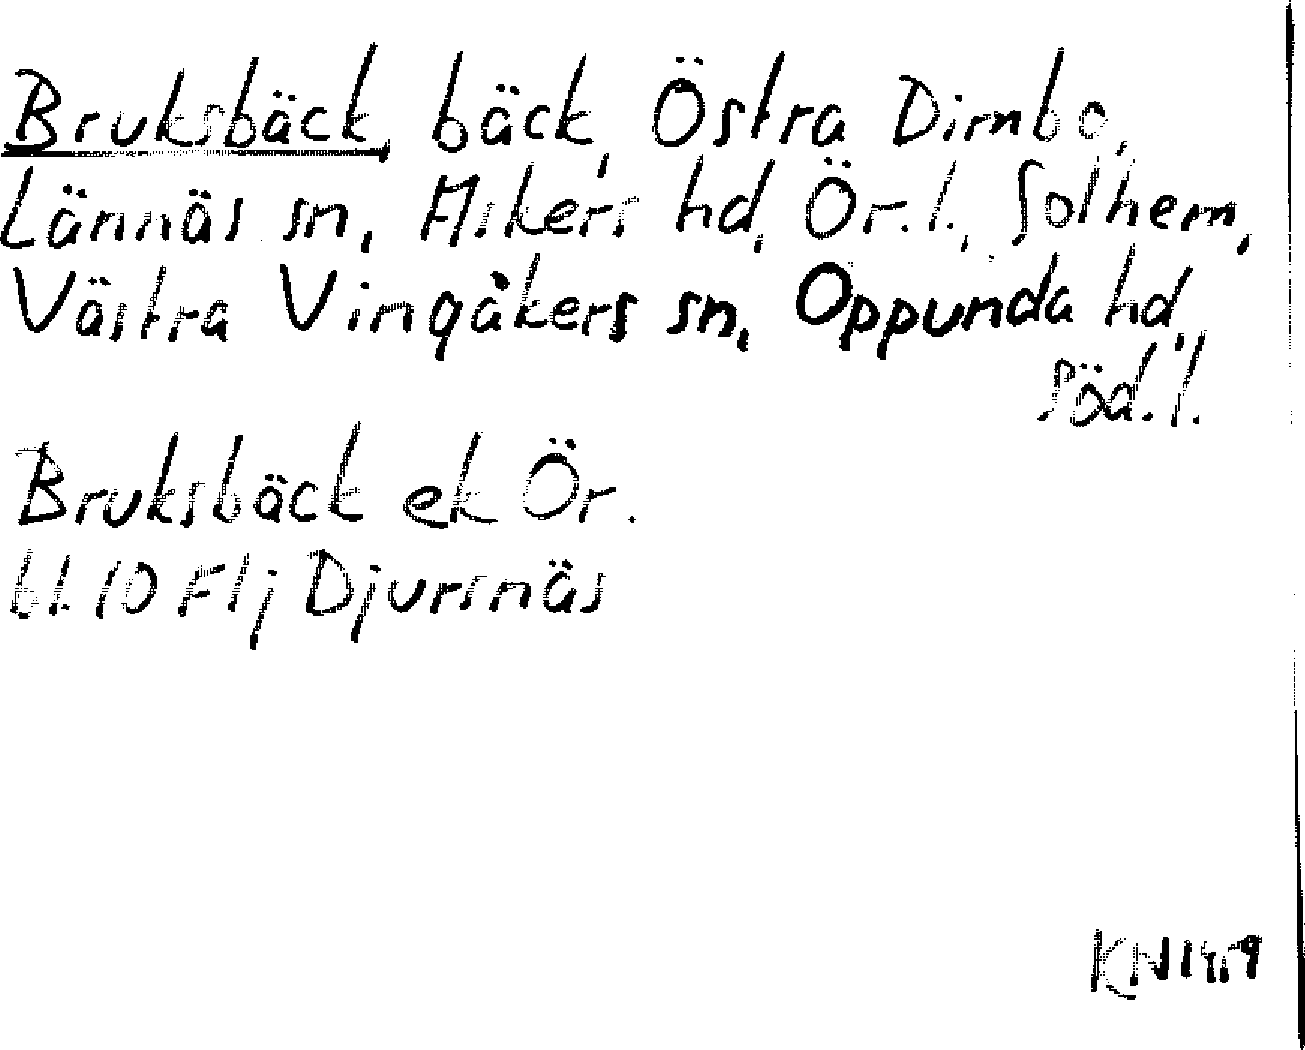 Bruksbäck, bäck, Östra Dimbo,
Lännäs sn, Askers hd, Ör.l., Solhem,
Västra Vingåkers sn, Oppunda hd,
Söd.l.
Bruksbäck ek Ör.
bl.10 Flj Djursnäs